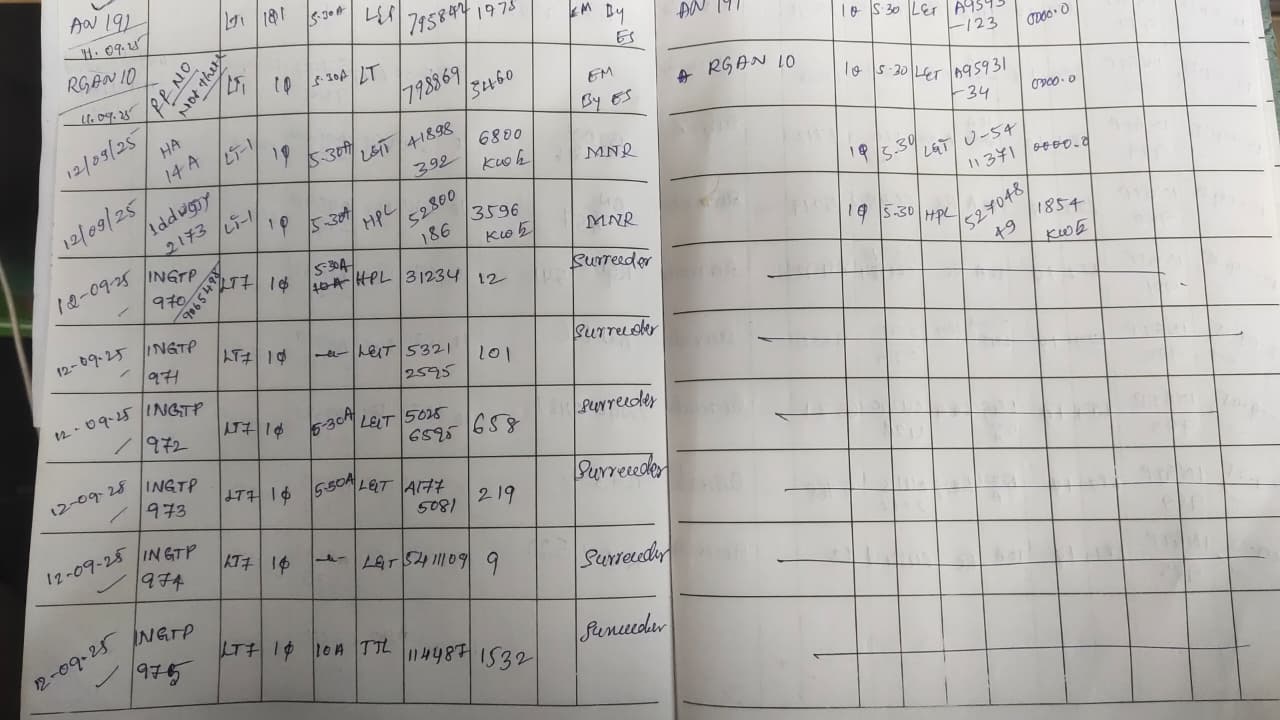 AN 191 LT1 1Φ1 5-30A L&T 795842 1975 EM By ES AN 191 1Φ 5-30 L&T A9593-123 0000.0
11.09.25
RGAN 10 RR NO Not there LT1 1Φ 5-30A LT 798869 3460 EM By ES RGAN 10 1Φ 5-30 L&T A95931-34 0000.0
11.09.25
12/09/25 HA 14A LT-1 1Φ 5-30A L&T 41898 392 6800 KWh MNR 1Φ 5-30 L&T U-54 11371 0000.0
12/09/25 2173 LT-1 1Φ 5-30A HPL 52800 186 3596 KWh MNR 1Φ 5-30 HPL 527048 49 1854 KWh
12-09-25 INGTP 970 LT7 1Φ 5-30A 10A HPL 31234 12 Surrender
12-09-25 INGTP 971 LT7 1Φ L&T 5321 2595 101 Surrender
12-09-25 INGTP 972 LT7 1Φ 5-30A L&T 5025 6595 658 Surrender
12-09-25 INGTP 973 LT7 1Φ 5-30A L&T 4177 5081 219 Surrender
12-09-25 INGTP 974 LT7 1Φ L&T 5411109 9 Surrender
12-09-25 INGTP 975 LT7 1Φ 10A TTL 114487 1532 Surrender